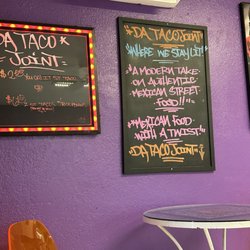 DA TACO
JOINT
"DA TACO JOINT"
"WHERE WE STAY LIT!"
"A MODERN TAKE
ON AUTHENTIC
MEXICAN STREET
FOOD!!"
"MEXICAN FOOD
WITH A TWIST"
DA TACO JOINT